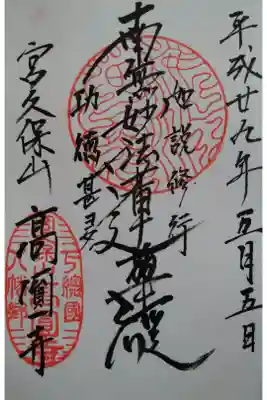 平成廿九年五月五日
如説修行
南無妙法蓮華経
功徳甚多
宮久保山
高圓寺